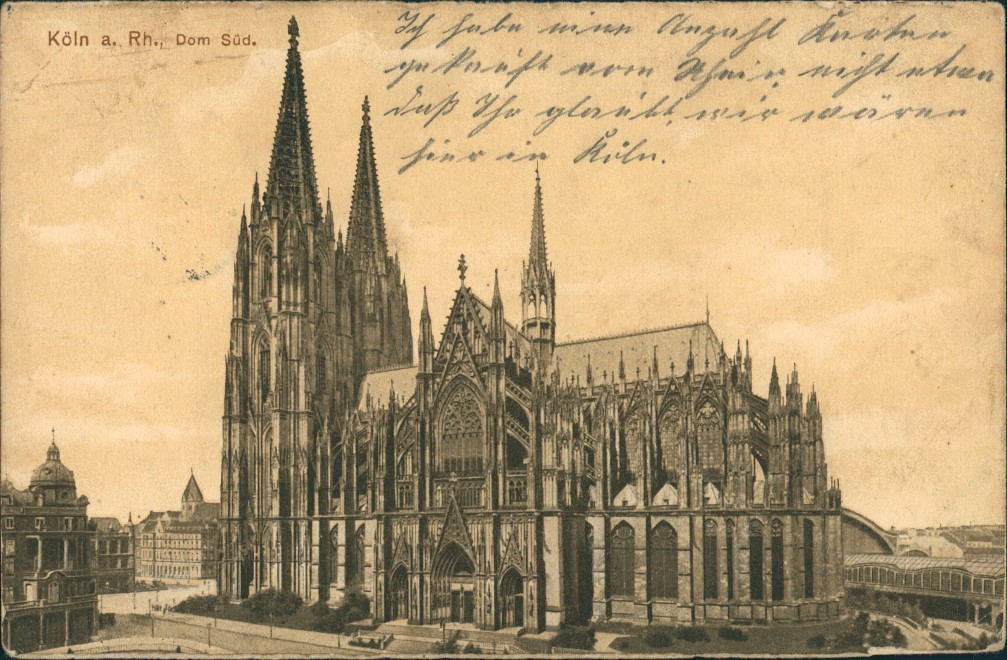 Köln a. Rh., Dom Süd.
Ich habe eine Anzahl Karten
gekauft vom Rhein, nicht etwa
daß Ihr glaubt, wir wären
hier in Köln.